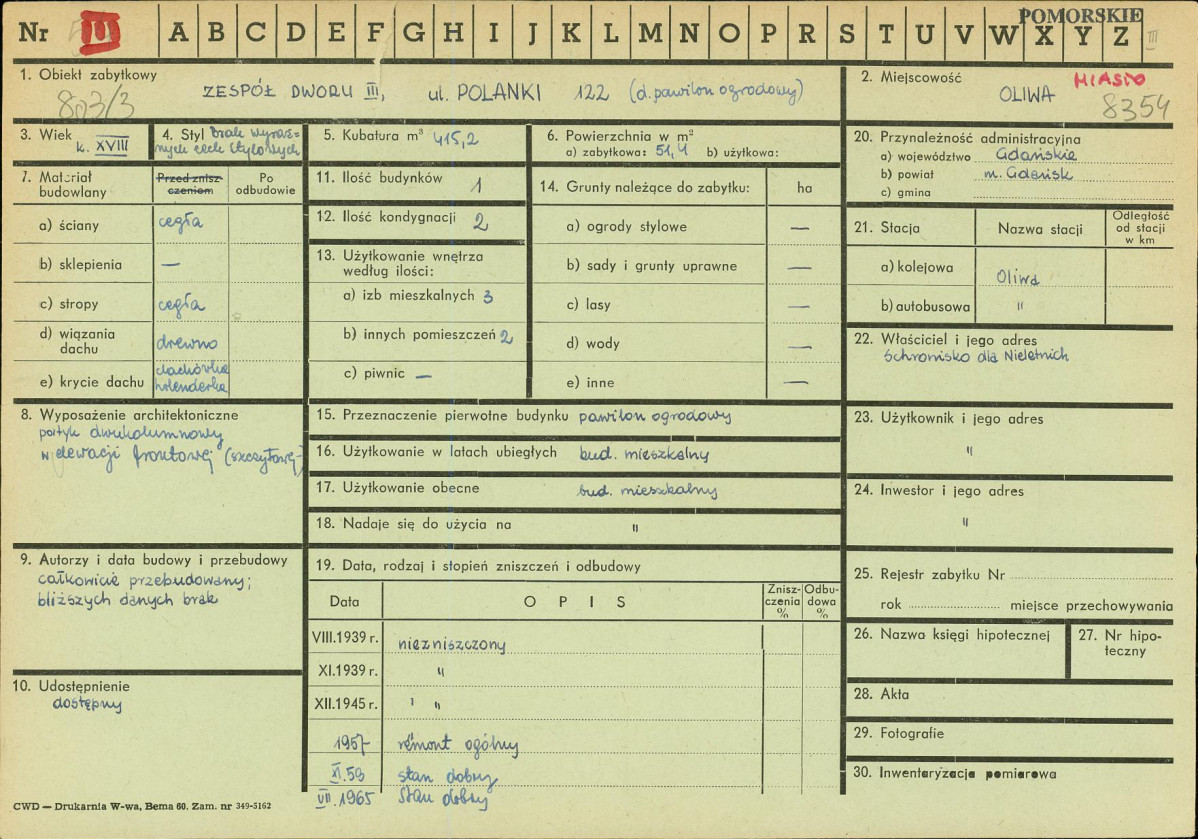 POMORSKIE
Nr III A B C D E F G H I J K L M N O P R S T U V W X Y Z III
1. Obiekt zabytkowy
ZESPÓŁ DWORU III, ul. POLANKI 122 (d. pawilon ogrodowy)
803/3
2. Miejscowość
MIASTO
OLIWA
8354
3. Wiek
k. XVIII
4. Styl brak wyraź-
nych cech stylowych
5. Kubatura m³ 415,2
6. Powierzchnia w m²
a) zabytkowa: 51,4 b) użytkowa:
7. Materiał
budowlany
Przed znisz-
czeniem
Po
odbudowie
a) ściany cegła
b) sklepienia —
c) stropy cegła
d) wiązania
dachu drewno
e) krycie dachu dachówka
holenderka
8. Wyposażenie architektoniczne
portyk dwukolumnowy
w elewacji frontowej (szczytowej)
9. Autorzy i data budowy i przebudowy
całkowicie przebudowany;
bliższych danych brak
10. Udostępnienie
dostępny
11. Ilość budynków 1
12. Ilość kondygnacji 2
13. Użytkowanie wnętrza
według ilości:
a) izb mieszkalnych 3
b) innych pomieszczeń 2
c) piwnic —
14. Grunty należące do zabytku: ha
a) ogrody stylowe —
b) sady i grunty uprawne —
c) lasy —
d) wody —
e) inne —
15. Przeznaczenie pierwotne budynku pawilon ogrodowy
16. Użytkowanie w latach ubiegłych bud. mieszkalny
17. Użytkowanie obecne bud. mieszkalny
18. Nadaje się do użycia na "
19. Data, rodzaj i stopień zniszczeń i odbudowy
Data OPIS Znisz-
czenia
% Odbu-
dowa
%
VIII.1939 r. niezniszczony
XI.1939 r. "
XII.1945 r. "
1957 remont ogólny
XI.59 stan dobry
VII.1965 stan dobry
20. Przynależność administracyjna
a) województwo Gdańskie
b) powiat m. Gdańsk
c) gmina
21. Stacja Nazwa stacji Odległość
od stacji
w km
a) kolejowa Oliwa
b) autobusowa "
22. Właściciel i jego adres
Schronisko dla Nieletnich
23. Użytkownik i jego adres
"
24. Inwestor i jego adres
"
25. Rejestr zabytku Nr
rok miejsce przechowywania
26. Nazwa księgi hipotecznej
27. Nr hipo-
teczny
28. Akta
29. Fotografie
30. Inwentaryzacja pomiarowa
CWD — Drukarnia W-wa, Bema 60. Zam. nr 349-5162